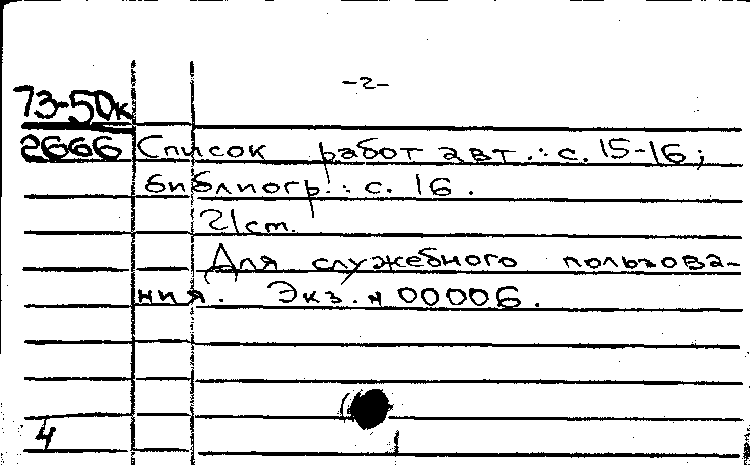 -2-
73-50к
2666 Список работ авт.: с. 15-16;
библиогр.: с. 16.
21 см.
Для служебного пользова-
ния. Экз. N 00006.
4